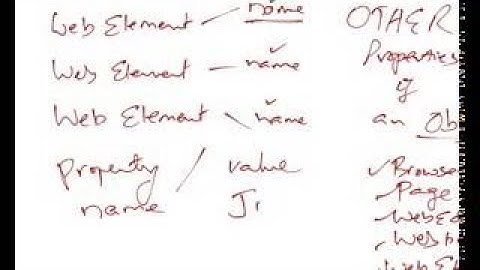 Web Element - name
Web Element - name
Web Element - name
Property / value
name
OTHER
Properties
of
an Ob
Browse
Page
WebEd